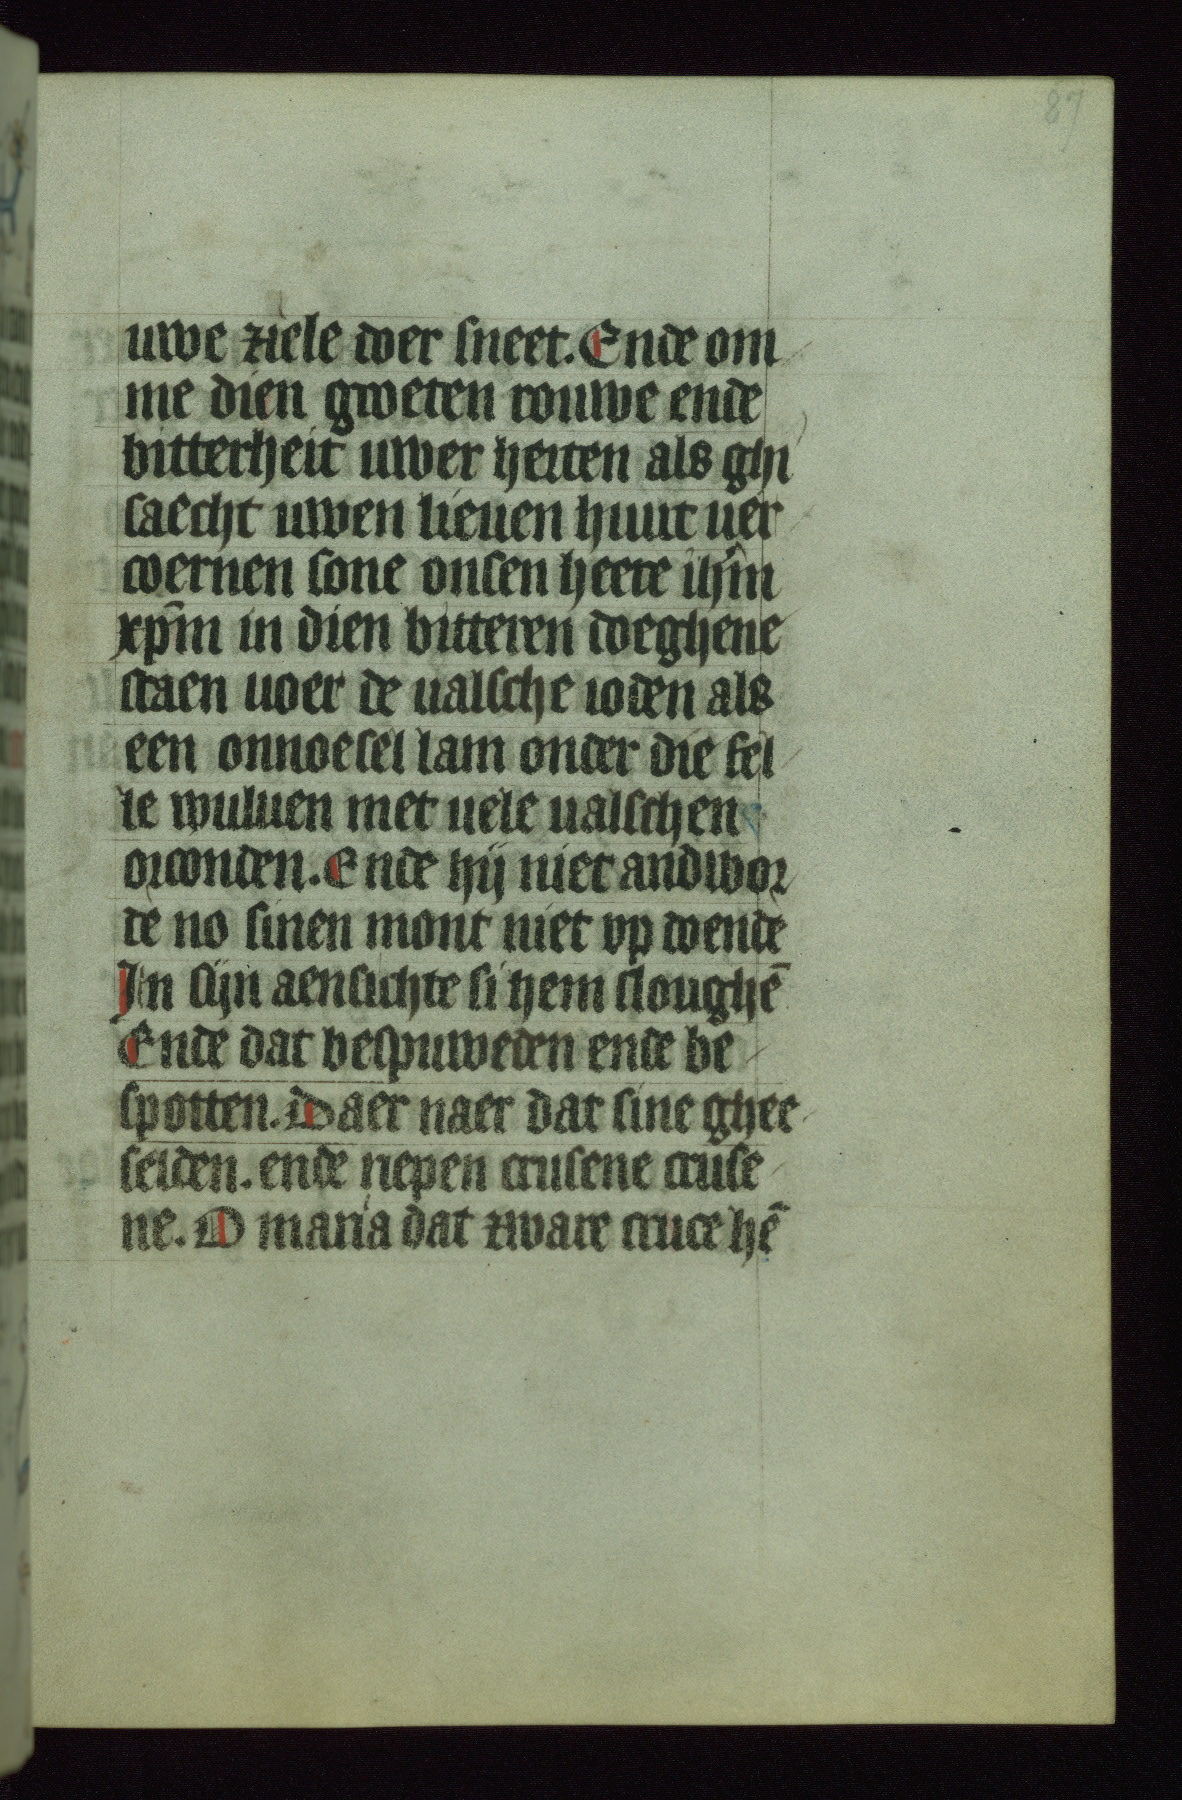 87
uwe ziele doer sneet. Ende om
me dien groeten rouwe ende
bitterheit uwer herten als ghi
saecht uwen lieuen huut uer
coernen sone onsen heere ihm̄
xpm̄ in dien bitteren doeghene
staen uoer de ualsche ioden als
een onnoesel lam onder die fel
le wuluen met uele ualschen
orconden. Ende hij niet andwor
de no sinen mont niet op doende
In sijn aensichte si hem sloughē
Ende dat bespuweden ende be
spotten. Daer naer dat sine ghee
selden. ende riepen crusene cruse
ne. O maria dat zware cruce hē